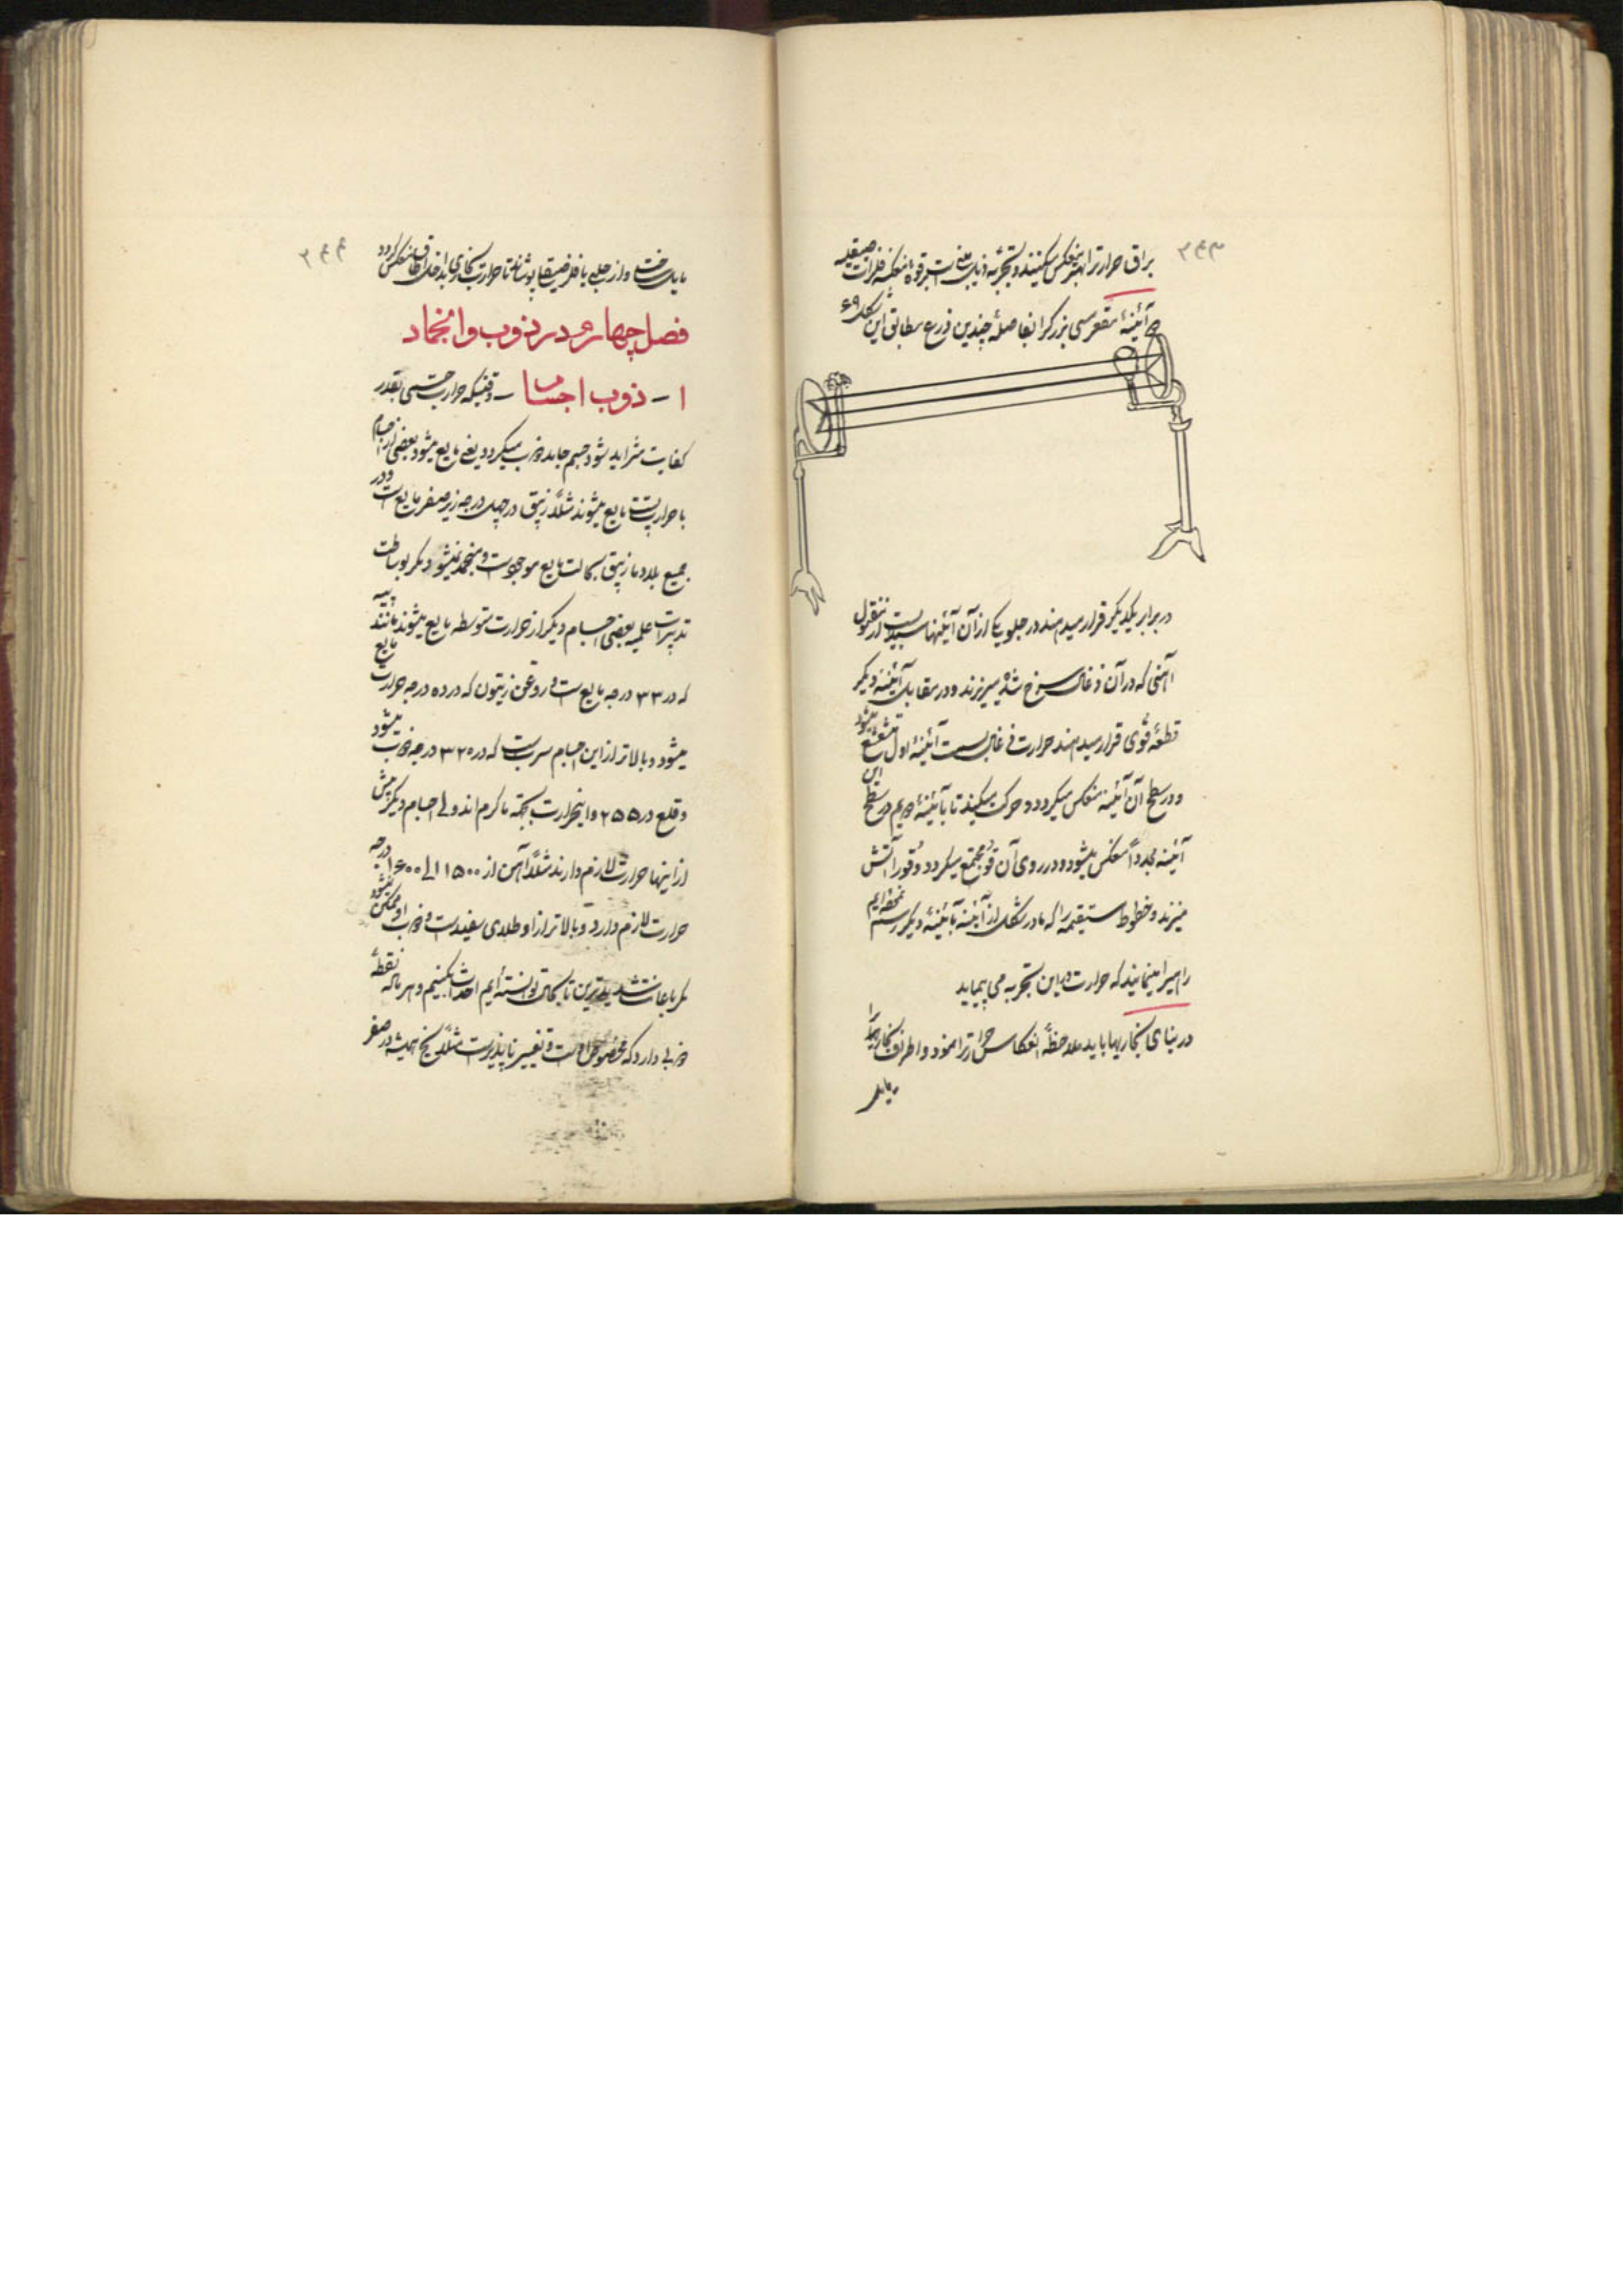 ۲۴۳
براق حرارترا بهتر منعکس میکنند و تجربهٔ ذیل مثبت قوهٔ منعکسهٔ فلزات صیقلیه
آئینهٔ مقعر مسی بزرگرا بفاصلهٔ چندین ذرع مطابق این شکل ۶۹
در برابر یکدیگر قرار میدهند در جلو یکی از آن آئینها سبدیست از مفتول
آهنی که در آن ذغال سرخ شده میریزند و در مقابل آئینهٔ دیگر
قطعهٔ قوی قرار میدهند حرارت ذغال بسمت آئینهٔ اول متشعشع میشود
و در سطح آن آئینه منعکس میگردد و حرکت میکند تا بآئینهٔ دویم در سطح این
آئینه مجدداً منعکس میشود و در روی آن قو مجتمع میگردد و قو را آتش
میزند و خطوط مستقیمه را که ما در شکل از آئینه بآئینهٔ دیگر رسم نموده‌ایم
راهیرا مینمایند که حرارت در این تجربه می پیماید
در بنای بخاریها باید ملاحظهٔ انعکاس حرارترا نمود و اطراف بخاریرا
باید
۲۴۴
مایل ساخت و از چلی یا فلز صیقلی پوشاند تا حرارت بخاری بداخل اطاق منعکس گردد
فصل چهارم در ذوب و انجماد
۱ - ذوب اجسام - وقتیکه حرارت جسمی بقدر
کفایت متزاید شود جسم جامد ذوب میگردد یعنی مایع میشود بعضی از اجسام
با حرارت پست مایع میشوند مثلاً زیبق در چهل درجه زیر صفر مایع است و در
جمیع بلاد ما زیبق بحالت مایع موجود است و منجمد نمیشود مگر بوساطت
تدبیرات علمیه بعضی اجسام دیگر از حرارت متوسطه مایع میشوند مانند پیه
که در ۳۳ درجه مایع است و روغن زیتون که در ده درجه حرارت مایع
میشود و بالاتر از این اجسام سرب است که در ۳۲۰ درجه ذوب میشود
و قلع در ۲۵۵ و اینحرارت بجهته ما گرم اند ولی اجسام دیگر بیش
از اینها حرارت لازم دارند مثلاً آهن از ۱۵۰۰ الی ۱۶۰۰ درجه
حرارت لازم دارد و بالاتر از او طلای سفید است و ذوب او ممکن نمیشود
مگر باعانت شدیدترین تابحال توانسته‌ایم احداث بکنیم و هر یک نقطهٔ
ذوبی دارد که مخصوص اوست و تغییر ناپذیر است مثلاً یخ همیشه در صفر